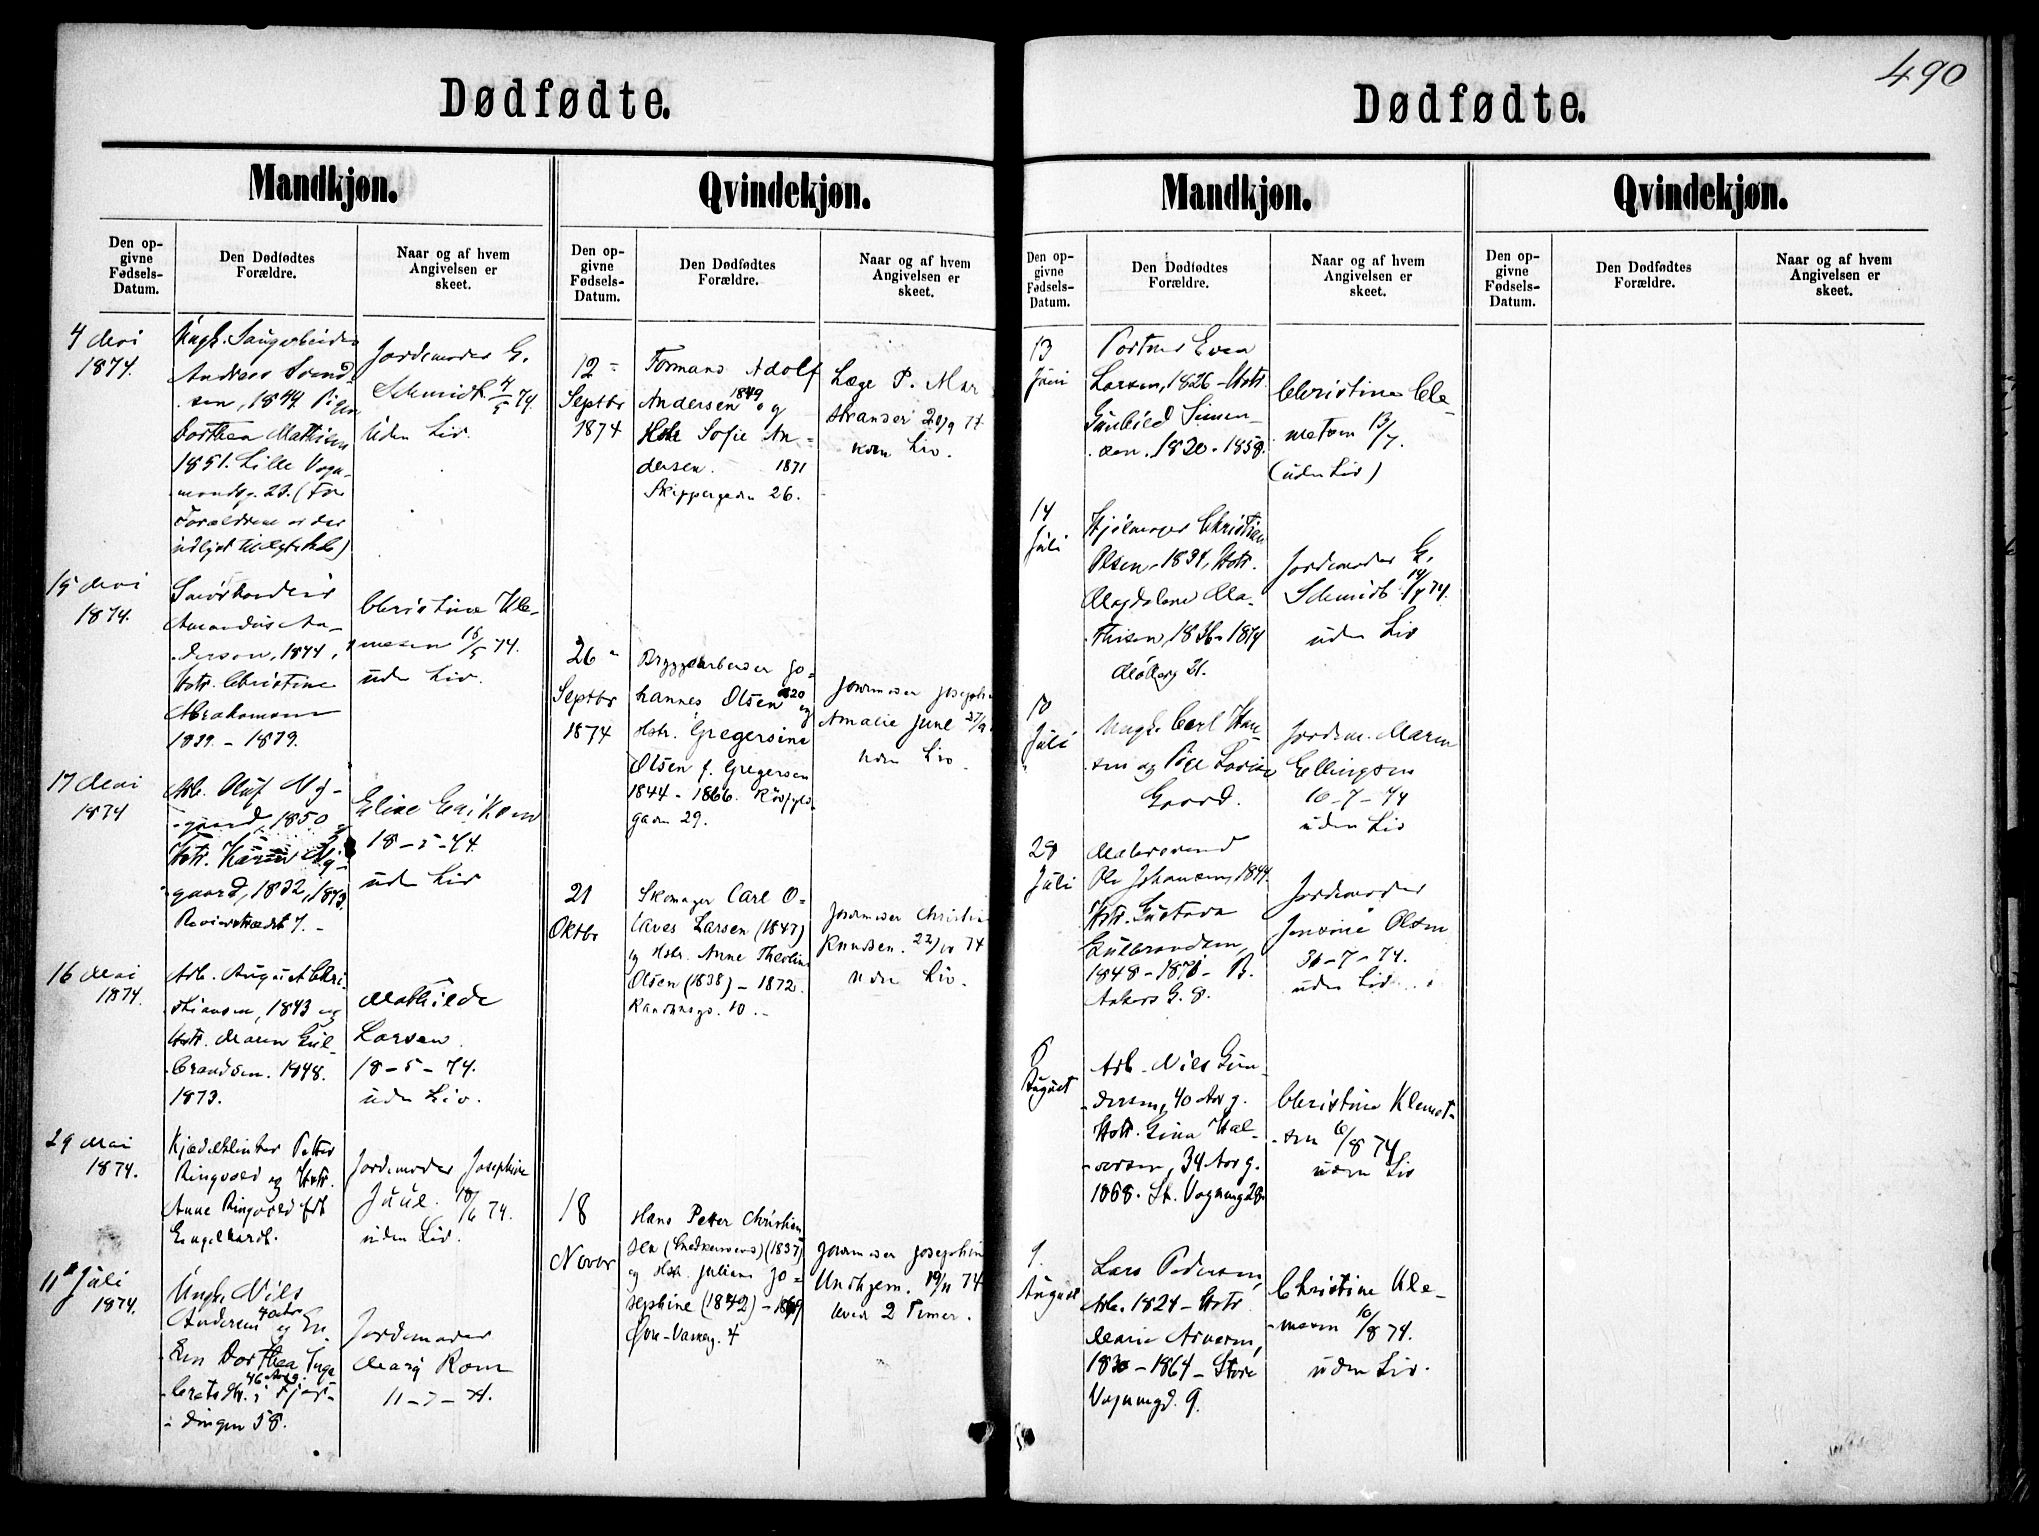 Dødfødte.
Mandkjøn.
Den op-
givne
Fødsels-
Datum.
Den Dødfødtes
Forældre.
Naar og af hvem
Angivelsen er
skeet.
4 Mai
1874.
Ungk.
Andreas Svend-
sen, 1844. Pigen
Dorthea Mathisen
1851. Lille Vogn-
mandsg. 23. (For
Forældrene er der
udlyst
Jordemoder G.
Schmidt 4/5 74.
Uden Liv.
15 Mai
1874.
Amandus An-
derson, 1844,
Hstr. Christine
Abrahamsen
1839. - 1879.
Christine Kle-
mesen 18/5 74.
uden Liv.
17 Mai
1874
Arb. Oluf Ny-
gaard, 1850 og
Hstr. Karen Ny-
gaard, 1832, 1873.
Revierstrædet 7. -
Eline Erikson
18-5-74.
uden Liv
16 Mai
1874.
Arb. August Chri-
stiansen, 1843 og
Hstr. Maren Gul-
brandsen. 1848.
1873.
Mathilde
Larsen.
18-5-74.
uden Liv.
29 Mai
1874.
Kjædeklinker Petter
Ringvold og Hstr.
Anne Ringvold fdt
Engelhardt.
Jordemoder Josephine
Juul. 18/6 74.
uden Liv.
11 Juli
1874.
Ungk. Nils
Andersen 40 Aar og En-
ken Dorthea Inge-
bretsdtr. 46 Aar g. i Fjer-
dingen 58.
Jordemoder
Mary Rom
11-7-74.
Qvindekjøn.
Den op-
givne
Fødsels-
Datum.
Den Dødfødtes
Forældre.
Naar og af hvem
Angivelsen er
skeet.
12 -
Septbr
1874
Formand Adolf
Andersen 1849 og
Hstr Sofie An-
dersen. 1871
Skippergaden 26.
Læge P. Mar
strander 20/9 74
uden Liv.
26 -
Septbr
1874
Bryggearbeider Jo-
hannes Olsen 1820 og
Hstr. Gregersine
Olsen f. Gregersen
1844 - 1866.
gaden 29.
Jordmoder Josephi
Amalie Juul 27/9
uden Liv.
21
Oktbr
Skomager Carl O-
laves Larsen (1847)
og Hstr. Anne Theoline
Olsen (1838) - 1872.
10. -
Jordmoder Christin
Knudsen. 22/10 74
uden Liv.
18
Novbr
Hans Petter Christian
sen (Snedkersvend) (1837)
og Hstr. Juliane Jo-
sephine (1842) - 1869
Øvre-Vaskeg. 4
Jordmoder Josephin
Undhjem. 19/11 74
levede 2 Timer.
490
Dødfødte.
Mandkjøn.
Den op-
givne
Fødsels-
Datum.
Den Dødfødtes
Forældre.
Naar og af hvem
Angivelsen er
skeet.
13
Juni
Portner Even
Larsen, 1826 - Hstr.
Gunhild Simen-
sen. 1820. 1858.
Christine Cle-
metsen 13/7.
(uden Liv)
14
Juli
Hjulmager Christian
Olsen - 1834, Hstr.
Magdalene Ma-
thisen, 1836 - 1874
Møllerg 21.
Jordemoder G.
Schmidt 14/7 74.
uden Liv
10
Juli
Ungk. Carl Han-
sen og Pige Lovise
Gaard.
Jordem. Maren
Ellingsen
10-7-74
uden Liv
29
Juli
Malersvend
Ole Johansen, 1844.
Hstr. Gustava
Gulbrandsen,
1848 - 1871 - B.
Ankers G. 8.
Jordemoder
Jensine Olsen
31-7-74.
uden Liv.
6
August
Arb. Nils Gun-
dersen, 40 Aar g.
Hstr. Gina Hal-
vorsen, 34 Aar g.
1868. St. Vognmg 28.
Christine Klemet-
sen 6/8 74
uden Liv
9.
August
Lars Pedersen,
Arb. 1824 - Hstr
Marie Arnesen,
1830 - 1864 - Store
Vognmgd. 9.
Christine Kle-
mesen 10/8 74.
uden Liv.
Qvindekjøn.
Den op-
givne
Fødsels-
Datum.
Den Dødfødtes
Forældre.
Naar og af hvem
Angivelsen er
skeet.